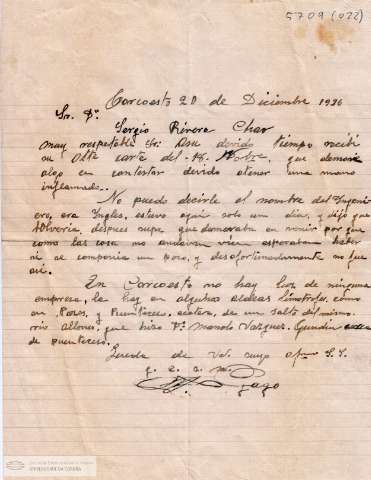 5709 (022)
Corcoesto 20 de Diciembre 1926
Sr. Dn
Sergio Rivera Chao
muy respetable Sr: Asu devido tiempo recibi
su Atta carte del 14. Nobre, que demore
algo en contestar devido atener una mano
inflamada.
No puedo decirle el nombre del Ingeni
ero, era Ingles, estuvo aqui solo un dia, y dijo que
Volveria, despues supe que demoraba en venir por que
como las cosa no andavan vien esperaban haber
si se componia un poco, y desafortunadamente no fue
asi.
En Corcoesto no hay luz de ninguna
empresa, la hay en algunas aldeas limitrofes, como
en Pazos, y Puenteceso, ecetera, de un salto del mismo
rio Allones, que hizo Dn Manolo Vazquez.
de puenteceso.
Queda de Vd. muy afmo S. S.
q. e. s. m.
Gago